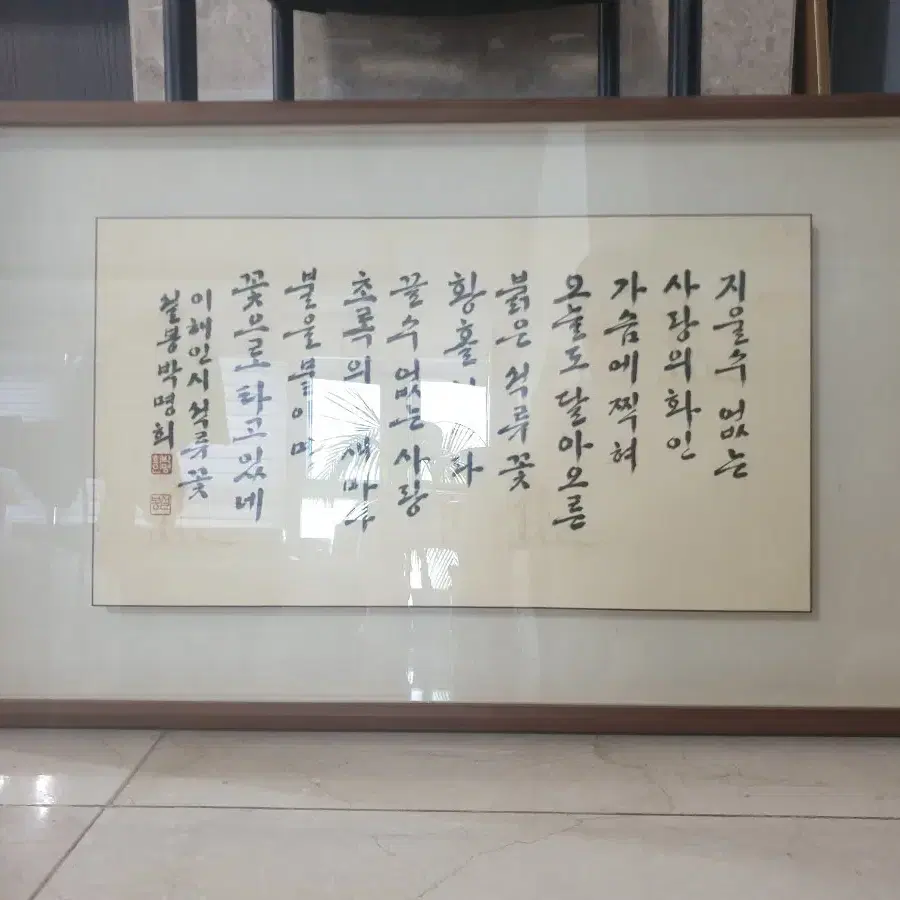 지울수 없는
사랑의 화인
가슴에 찍혀
오늘도 달아오른
붉은 석류꽃
황홀
끌수 없는 사랑
초록의
불을
꽃으로 타고 있네
이해인시 석류꽃
박명희